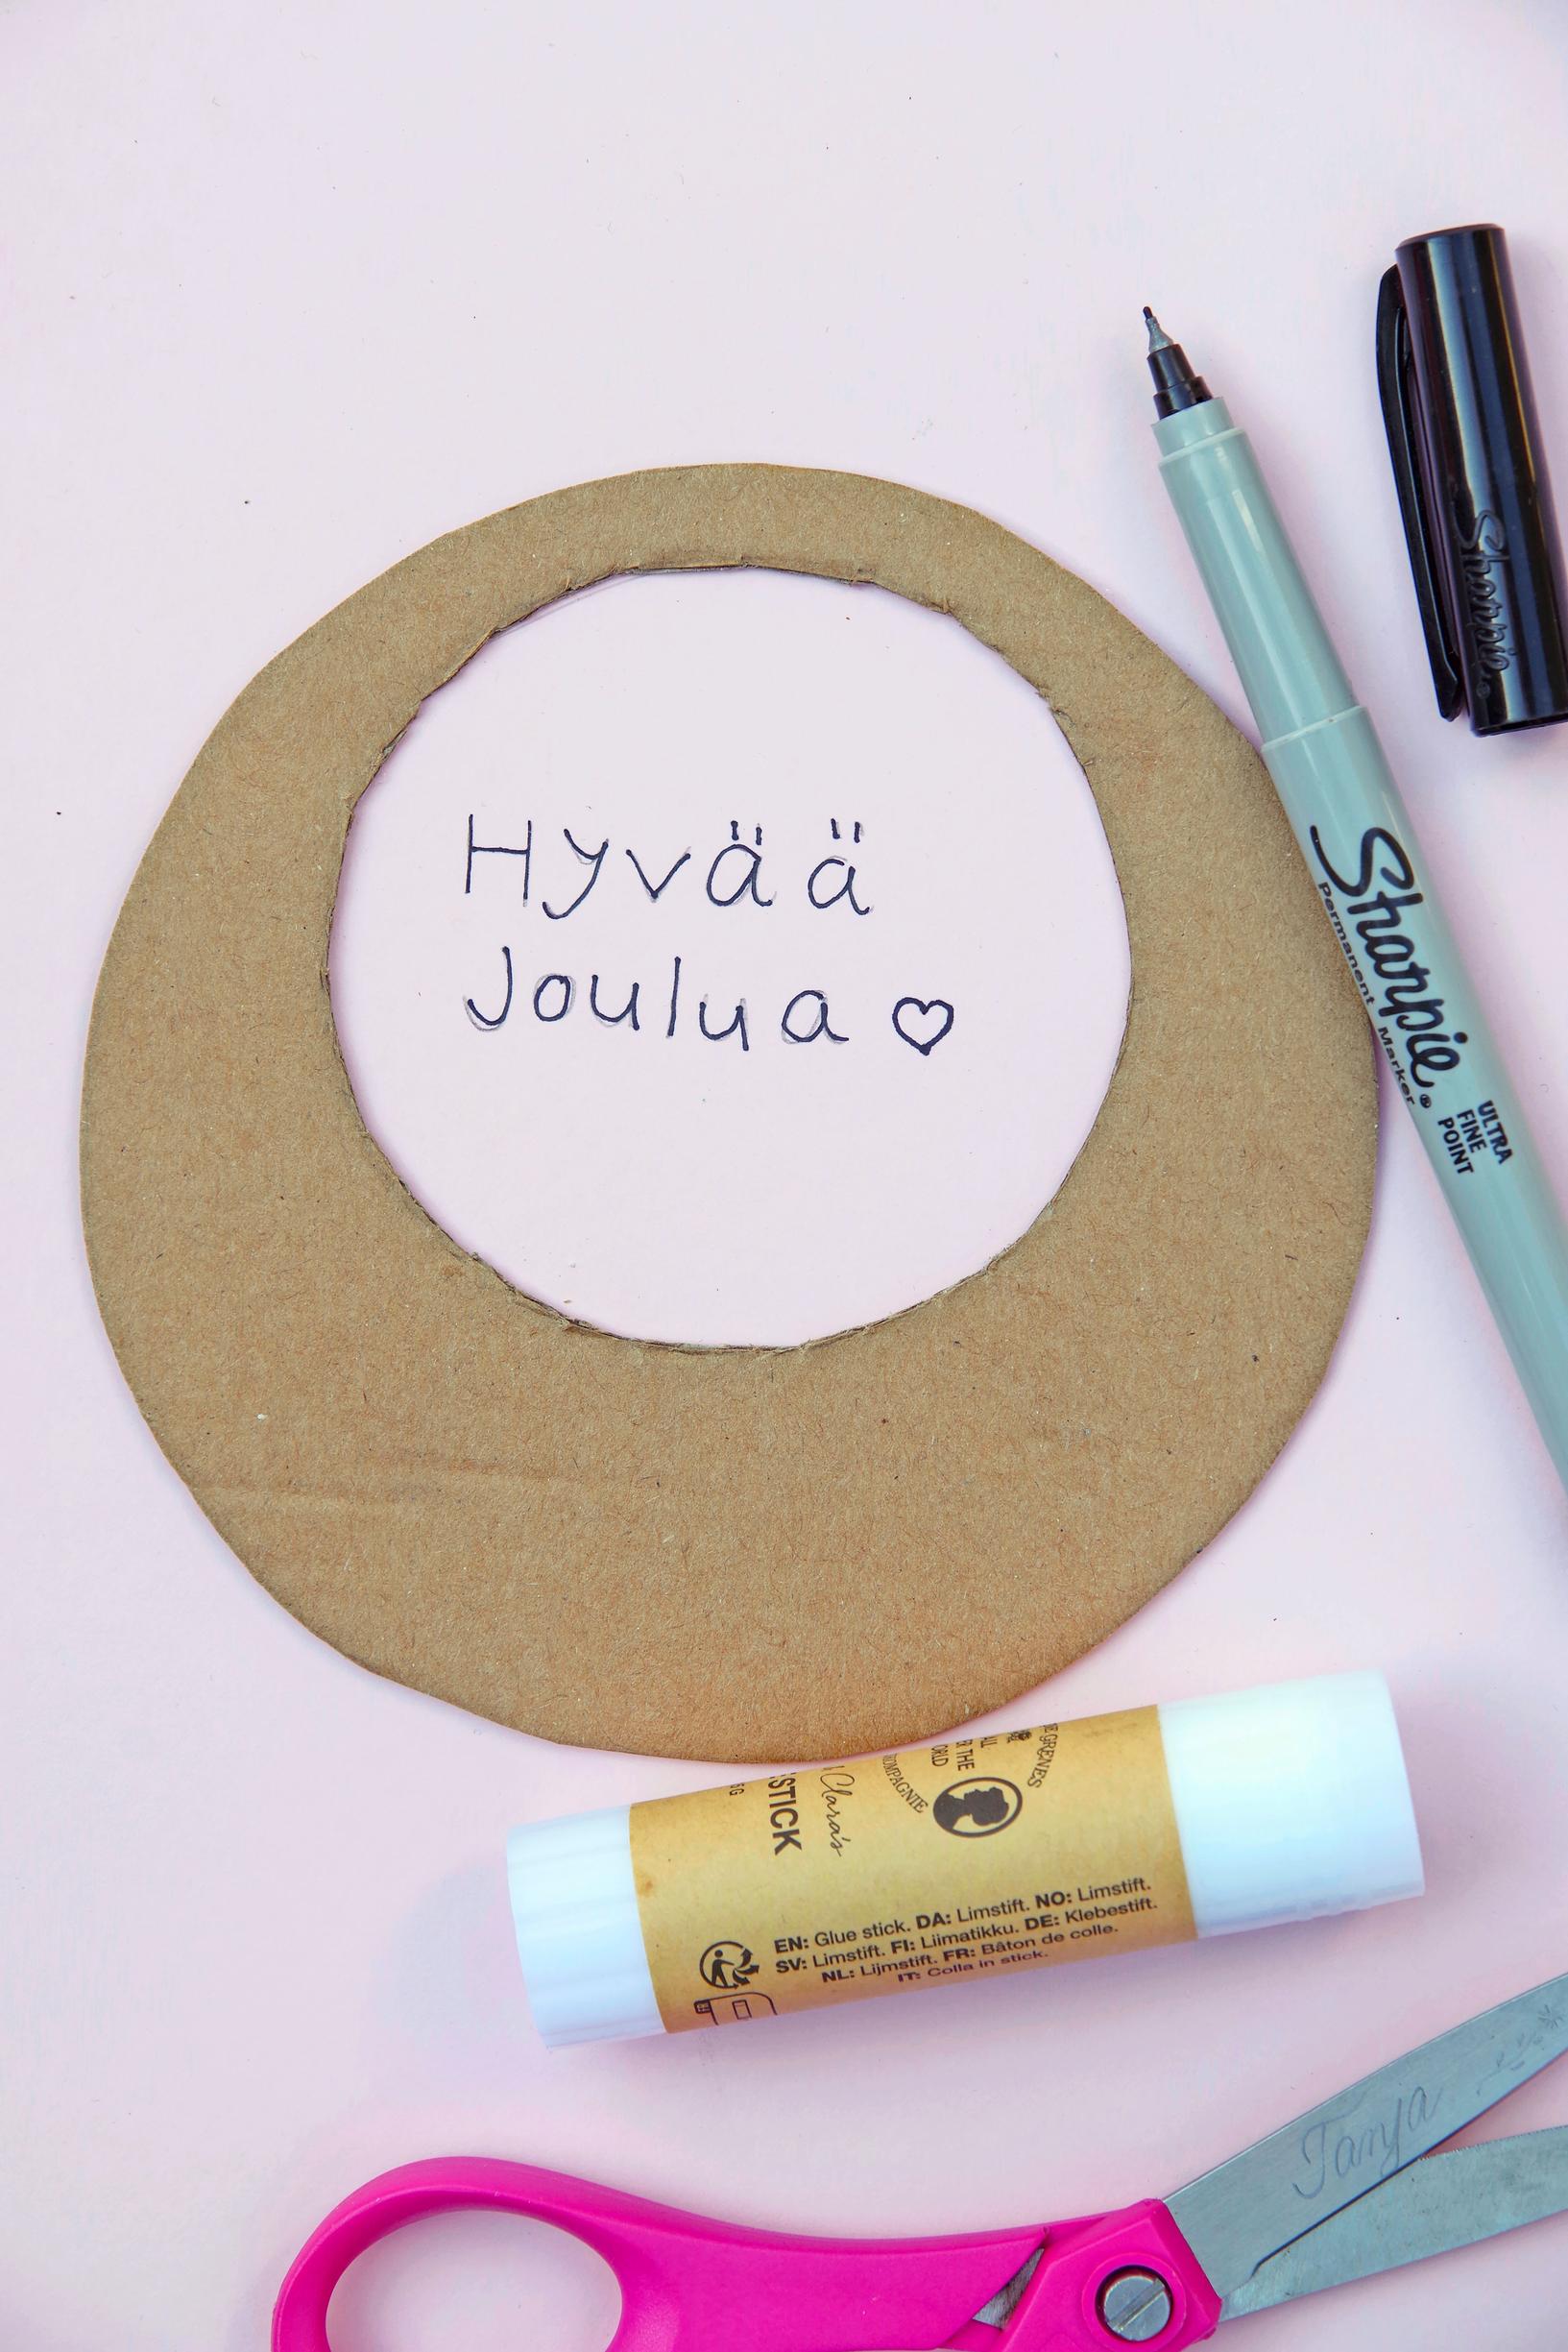 Hyvää
Joulua ♡
Sharpie®
Permanent Marker
ULTRA
FINE
POINT
Sharpie®
Clara's
STICK
EN: Glue stick. DA: Limstift. NO: Limstift.
SV: Limstift. FI: Liimatikku. DE: Klebestift.
NL: Lijmstift. FR: Bâton de colle.
IT: Colla in stick.
Tanya